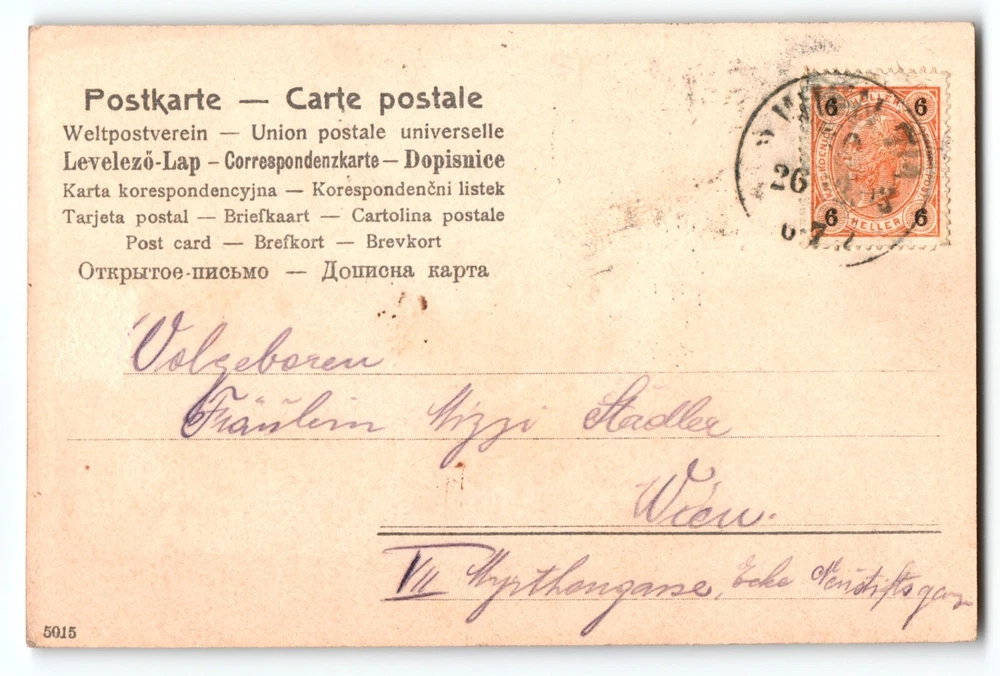 Postkarte — Carte postale
Weltpostverein — Union postale universelle
Levelező-Lap – Correspondenzkarte – Dopisnice
Karta korespondencyjna — Korespondenční listek
Tarjeta postal — Briefkaart — Cartolina postale
Post card — Brefkort — Brevkort
Открытое-письмо — Дописна карта
6 6
26
6 HELLER 6
Volgeboren
Fräulein Mizzi Stadler
Wien.
VII Myrthengasse, Ecke Neustiftsgasse
5015